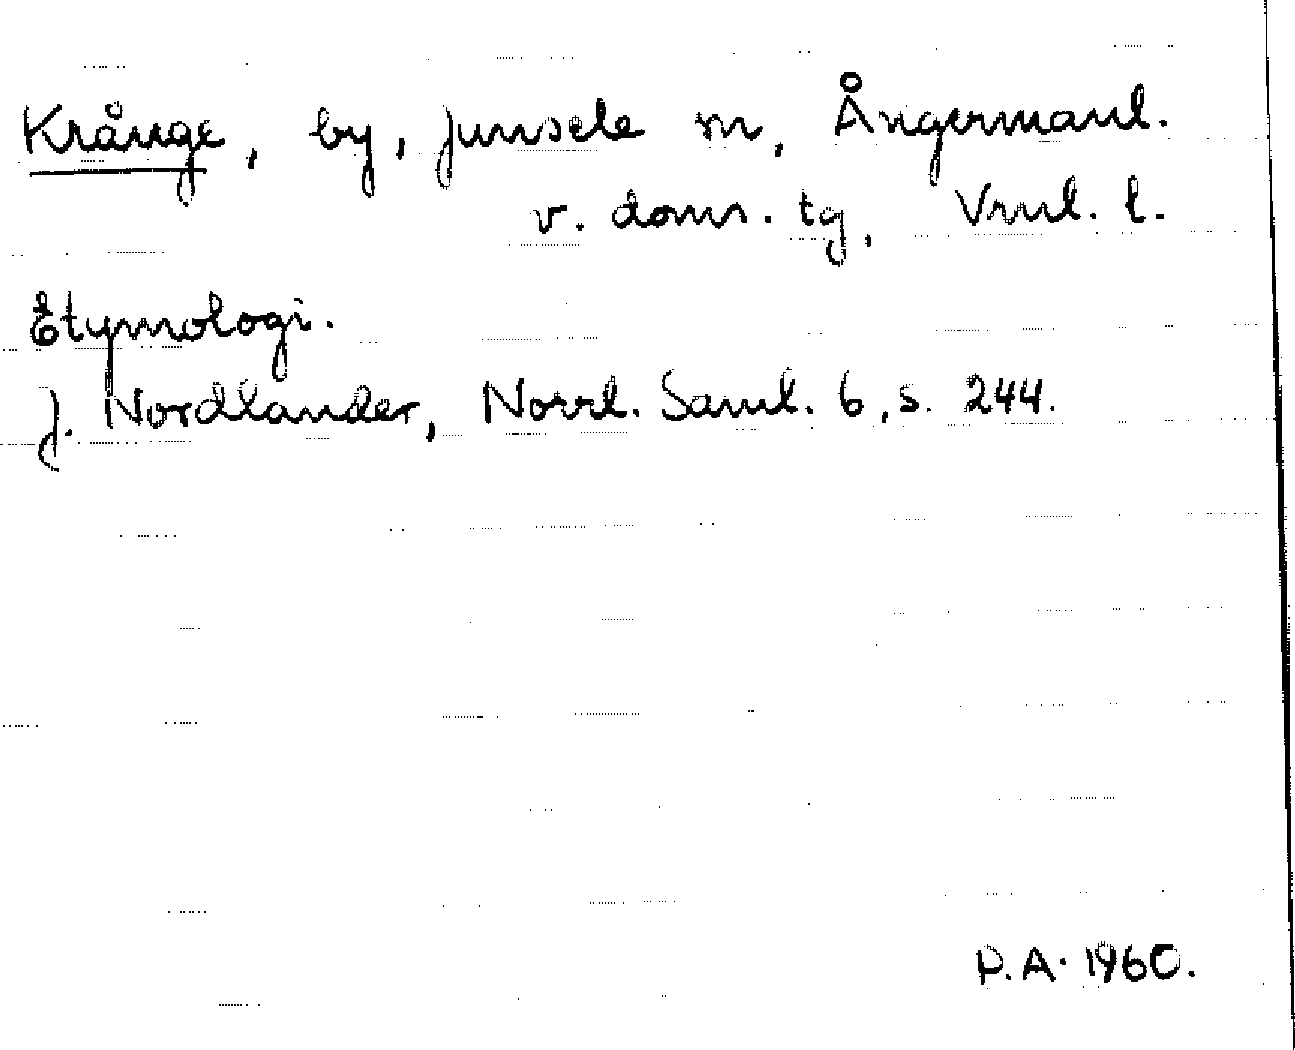 Krånge, by, Junsele sn, Ångermanl.
v. doms. tg, Vnrl. l.
Etymologi.
J. Nordlander, Norrl. Saml. 6, s. 244.
P.A. 1960.